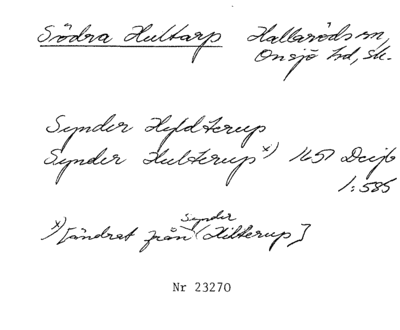 Södra Hultarp Hallaröds sn,
Onsjö hd, Sk.
Synder Hyldterup
Synder Hulterup x) 1651 DCijb
1:585
Synder
x) [ändrat från (Hilterup]
Nr 23270